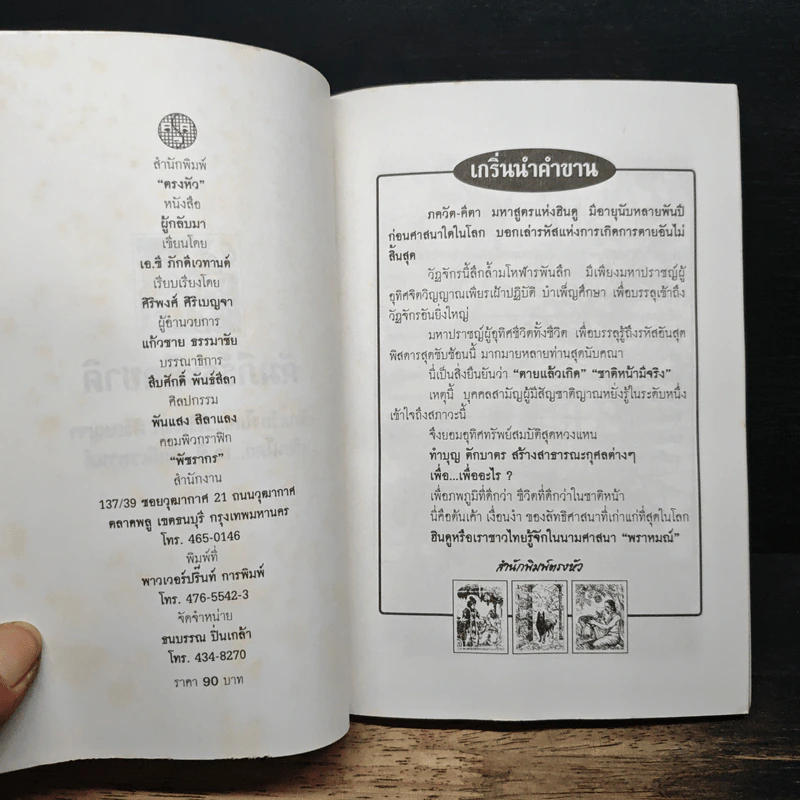 สำนักพิมพ์
“ตรงหัว”
หนังสือ
ผู้กลับมา
เขียนโดย
เอ.ซี ภักดีเวทานต์
เรียบเรียงโดย
ศิริพงศ์ ศิริเบญจา
ผู้อำนวยการ
แก้วชาย ธรรมาชัย
บรรณาธิการ
สืบศักดิ์ พันธ์สีลา
ศิลปกรรม
พันแสง สิลาแลง
คอมพิวกราฟิก
“พัชรากร”
สำนักงาน
137/39 ซอยวุฒากาศ 21 ถนนวุฒากาศ
ตลาดพลู เขตธนบุรี กรุงเทพมหานคร
โทร. 465-0146
พิมพ์ที่
พาวเวอร์ปริ๊นท์ การพิมพ์
โทร. 476-5542-3
จัดจำหน่าย
ธนบรรณ ปิ่นเกล้า
โทร. 434-8270
ราคา 90 บาท
เกริ่นนำคำขาน
ภควัต-คีตา มหาสูตรแห่งฮินดู มีอายุนับหลายพันปี
ก่อนศาสนาใดในโลก บอกเล่ารหัสแห่งการเกิดการตายอันไม่
สิ้นสุด
วัฏจักรนี้ลึกล้ำมโหฬารพันลึก มีเพียงมหาปราชญ์ผู้
อุทิศจิตวิญญาณเพียรเฝ้าปฏิบัติ บำเพ็ญศึกษา เพื่อบรรลุเข้าถึง
วัฏจักรอันยิ่งใหญ่
มหาปราชญ์ผู้อุทิศชีวิตทั้งชีวิต เพื่อบรรลุรู้ถึงรหัสอันสุด
พิสดารสุดซับซ้อนนี้ มากมายหลายท่านสุดนับคณา
นี่เป็นสิ่งยืนยันว่า “ตายแล้วเกิด” “ชาติหน้ามีจริง”
เหตุนี้ บุคคลสามัญผู้มีสัญชาติญาณหยั่งรู้ในระดับหนึ่ง
เข้าใจถึงสภาวะนี้
จึงยอมอุทิศทรัพย์สมบัติสุดหวงแหน
ทำบุญ ตักบาตร สร้างสาธารณะกุศลต่างๆ
เพื่อ...เพื่ออะไร ?
เพื่อภพภูมิที่ดีกว่า ชีวิตที่ดีกว่าในชาติหน้า
นี่คือต้นเค้า เงื่อนงำ ของลัทธิศาสนาที่เก่าแก่ที่สุดในโลก
ฮินดูหรือเราชาวไทยรู้จักในนามศาสนา “พราหมณ์”
สำนักพิมพ์ตรงหัว